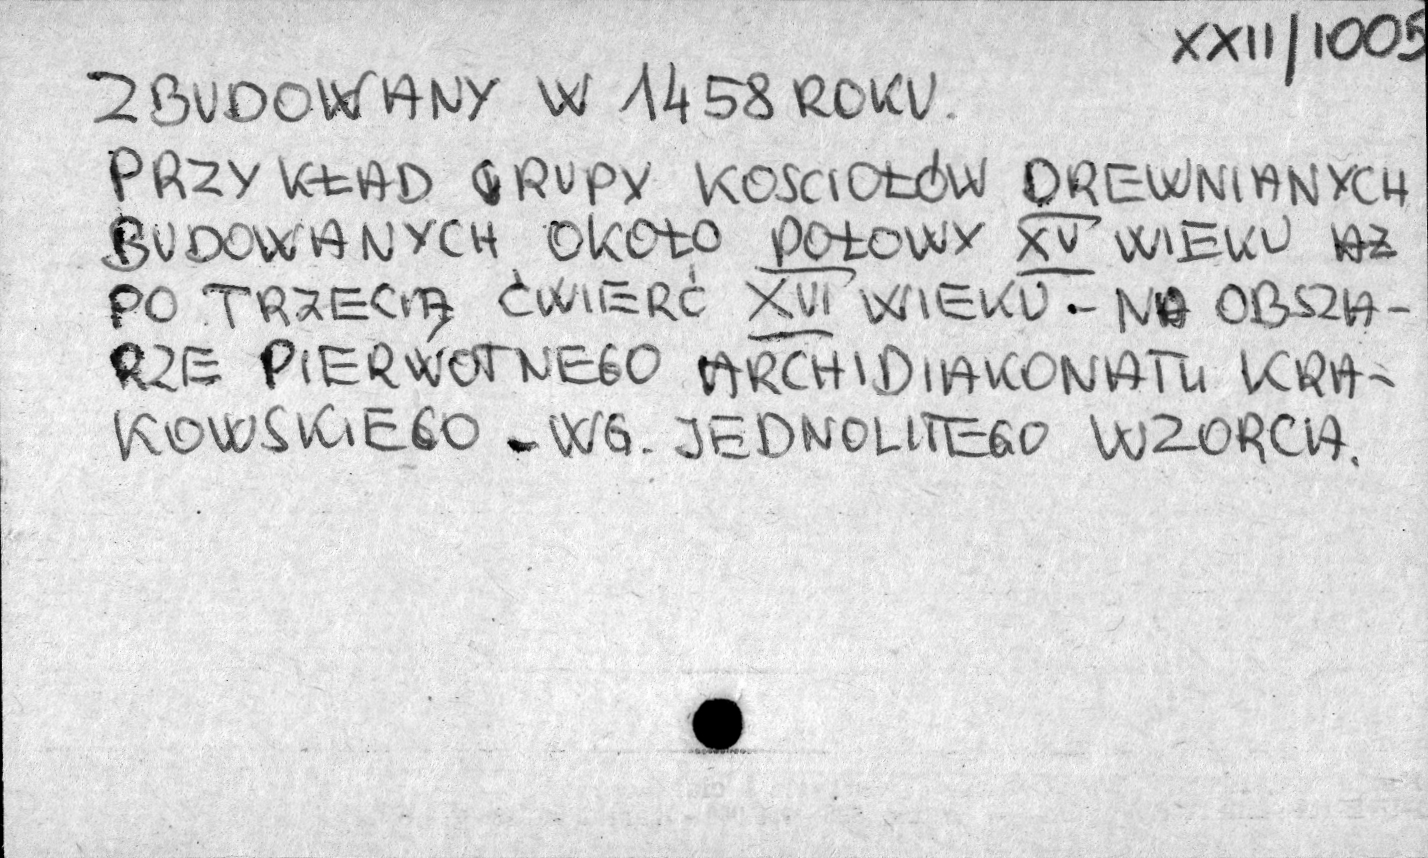 XXII/1005
ZBUDOWANY W 1458 ROKU.
PRZYKŁAD GRUPY KOSCIOŁÓW DREWNIANYCH
BUDOWANYCH OKOŁO POŁOWY XV WIEKU AŻ
PO TRZECIĄ ĆWIERĆ XVI WIEKU - NA OBSZA-
RZE PIERWOTNEGO ARCHIDIAKONATU KRA-
KOWSKIEGO - WG. JEDNOLITEGO WZORCA.